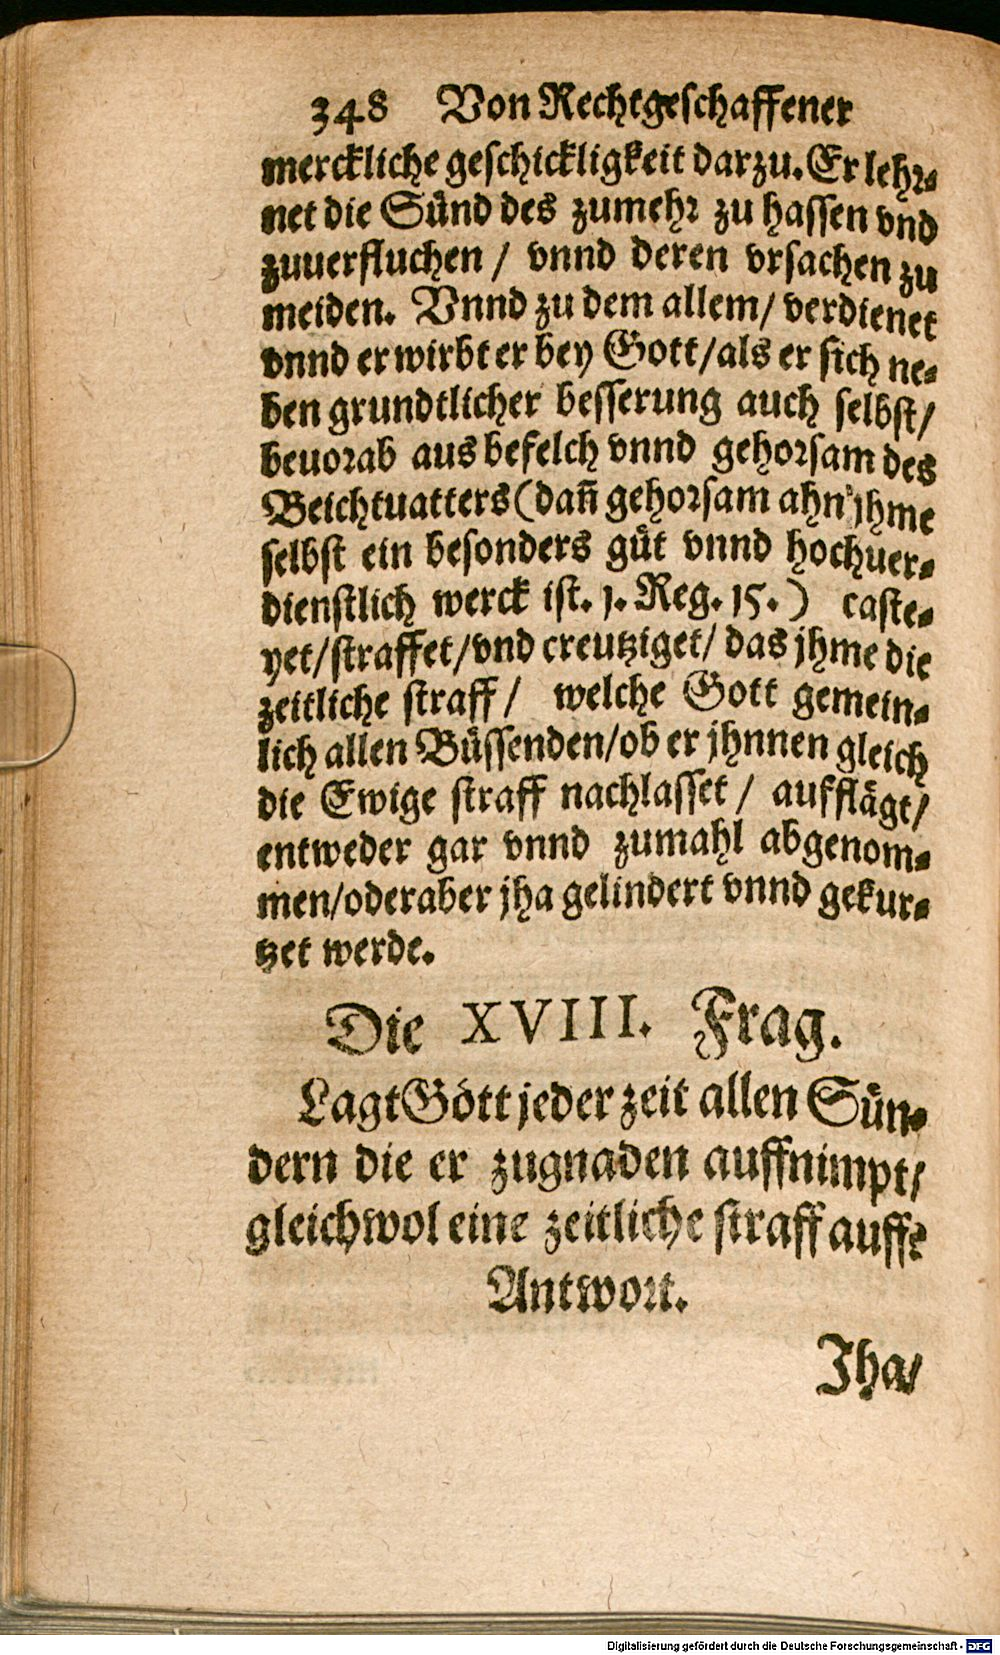 348 Von Rechtgeschaffener
merckliche geschickligkeit darzu. Er lehr-
net die Sünd des zumehr zu hassen vnd
zuuerfluchen / vnnd deren vrsachen zu
meiden. Vnnd zu dem allem / verdienet
vnnd erwirbt er bey Gott / als er sich ne-
ben grundtlicher besserung auch selbst /
beuorab aus befelch vnnd gehorsam des
Beichtuatters (dañ gehorsam ahn jhme
selbst ein besonders güt vnnd hochuer-
dienstlich werck ist. 1. Reg. 15.) caste-
yet / straffet / vnd creutziget / das jhme die
zeitliche straff / welche Gott gemein-
lich allen Büssenden / ob er jhnnen gleich
die Ewige straff nachlasset / aufflägt /
entweder gar vnnd zumahl abgenom-
men / oder aber jha gelindert vnnd gekur-
tzet werde.
Die XVIII. Frag.
Lagt Gott jeder zeit allen Sün-
dern die er zugnaden auffnimpt /
gleichwol eine zeitliche straff auff?
Antwort.
Jha /
Digitalisierung gefördert durch die Deutsche Forschungsgemeinschaft - DFG